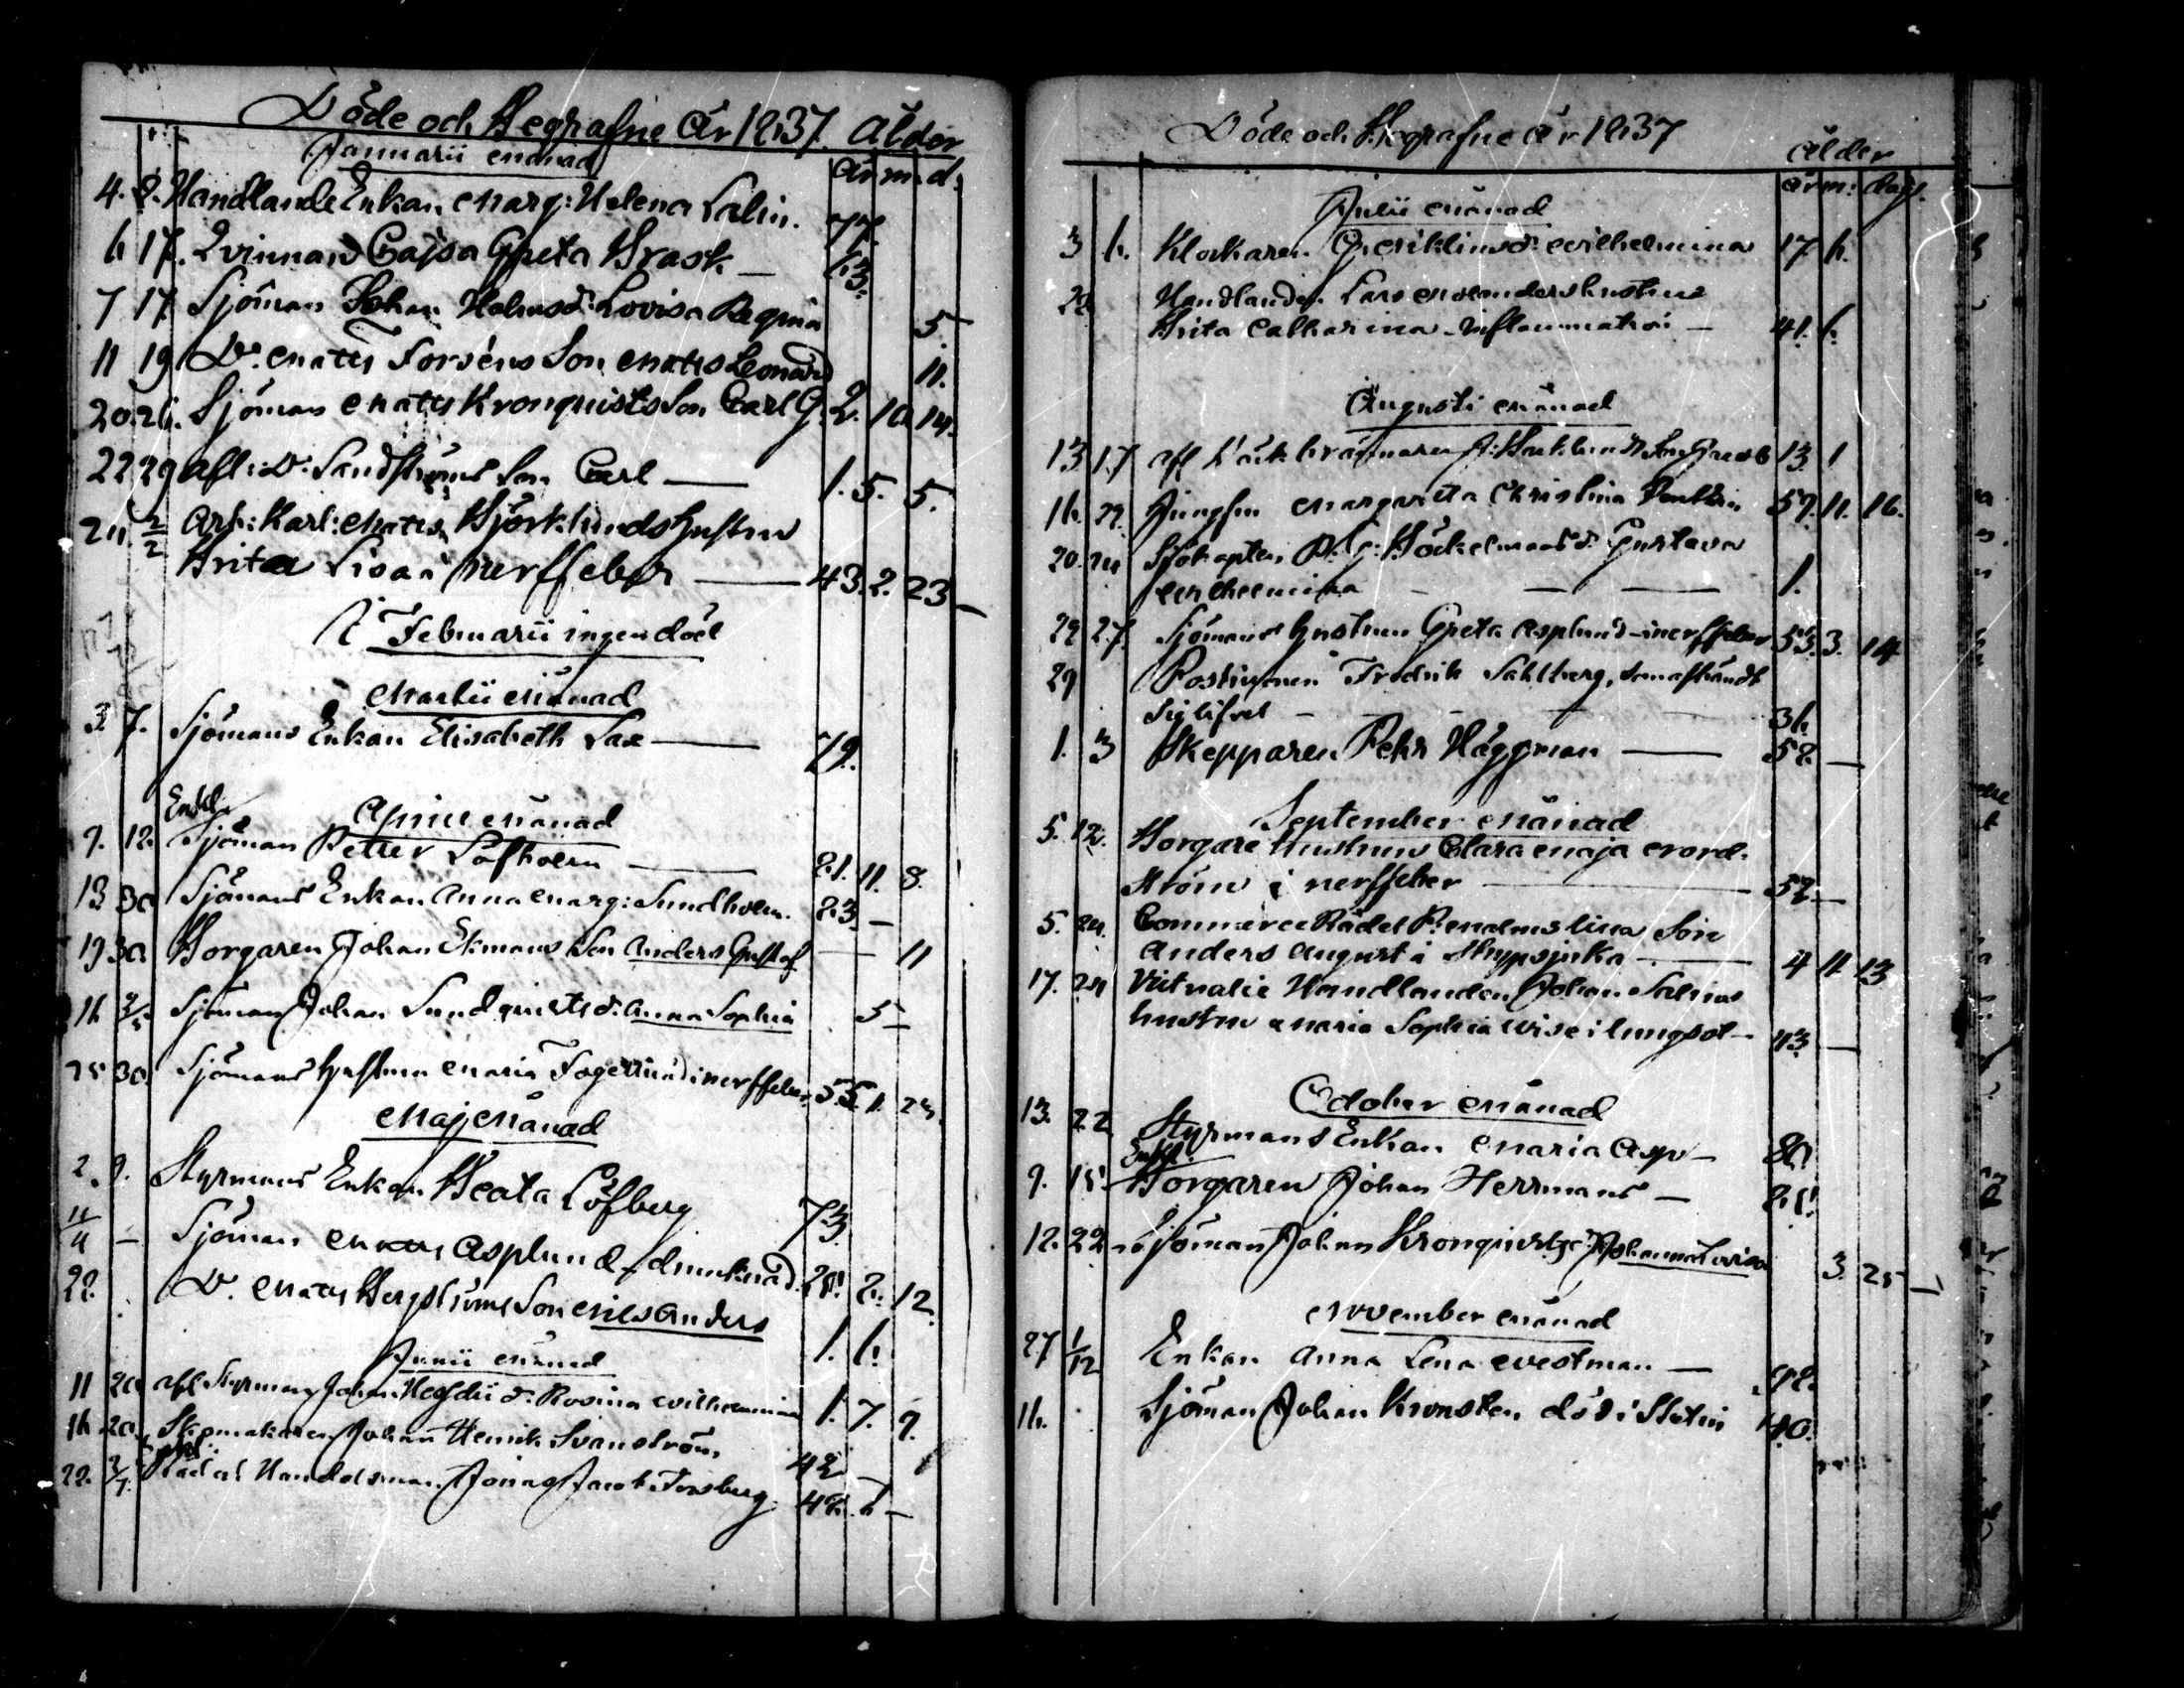 Döde och Begrafne År 1837. Ålder
Januarii Månad
år m. d.
4. 8. Handlande Enkan Marg: Helena Salin. 77.
6 17. Qvinnan Cajsa Greta Brask — 63.
7 17 Sjöman Johan Holms dr Lovisa Regina 5 —
11 19 Do. Matts Forséns Son Matts Leonard 11.
20. 26. Sjöman Matts Kronquists Son Carl G. 2. 10. 14.
22 29 afl: Do: Sandströms Son Carl — 1. 5. 5.
24 2/2 Arb: Karl: Matts Björklunds Hustru
Brita Lisa i nerffeber — 43. 2. 23 —
I Februarii ingen död
Martii Månad
3. 7. Sjömans Enkan Elisabeth Lax — 79.
April Månad
Enkl.
9. 12. Sjöman Petter Löfholm — 81. 11. 8.
13 30 Sjömans Enkan Anna Marg: Sundholm. 83 —
19 30 Borgaren Johan Ekmans Son Anders Gustaf — 11
16 2/5 Sjöman Johan Sundquists dr. Anna Sophia 5 —
25 30 Sjömans Hustrun Maria Fagerlund i nerffeber 55. 1. 23.
Maj Månad
2. 9. Styrmans Enkan Beata Löfberg 73
11/4 — Sjöman Matts Asplund — drunknad. 28. 2. 12.
22. Do. Matts Bergströms Son Nils Anders 1. 6.
Junii Månad
11 20 afl Styrman Johan dr. Rosina Wilhelmina 1. 7. 9.
16 20. Skomakaren Johan Henrik Svanström 42
Enkl.
22. 2/7. Rådet Handelsman Jonas Jacob Forsberg. 48. 6 —
Döde och Begrafne År 1837
Ålder
år m: dag.
Julii Månad
3 6. Klockaren G. Wiklunds dr Wilhelmina 17 6.
28 Handlanden Lars Molanders hustru
Brita Catharina — Inflammation — 41. 6.
Augusti Månad
13 17 afl J: Backlunds Son 13. 1
16. 22. Jungfru Margareta Christina 57. 11. 16.
20. 24 Sjökapten P. G: Böckelmans dr Gustava
Wilhelmina — — — 1.
22 27. Sjömans hustrun Greta Asplund — i nerffeber 53. 3. 14
29 Postiljonen Fredrik Sahlberg, som afhändt
sig lifvet — — — 36.
1. 3 Skepparen Pehr Häggman — 58. —
September Månad
5. 12. Borgare hustrun Clara Maja Nord-
ström i nerffeber — 52 —
5. 24. Commerce Rådet P: Malms lilla Son
Anders August i Strypsjuka — 4 11 13
17. 24 Victualie Handlanden Johan Salins
hustru Maria Sophia Wise i lungsot — 43. —
October Månad
13. 22 Styrmans Enkan Maria Asp — 80
Enkl.
9. 15. Borgaren Johan Herrmans — 81.
12. 22 Sjöman Johan Kronquists dr Johanna Lovisa 3. 25 —
November Månad
27 1/12 Enkan Anna Lena Westman — 92.
16. Sjöman Johan Kronsten död i Stettin 40.